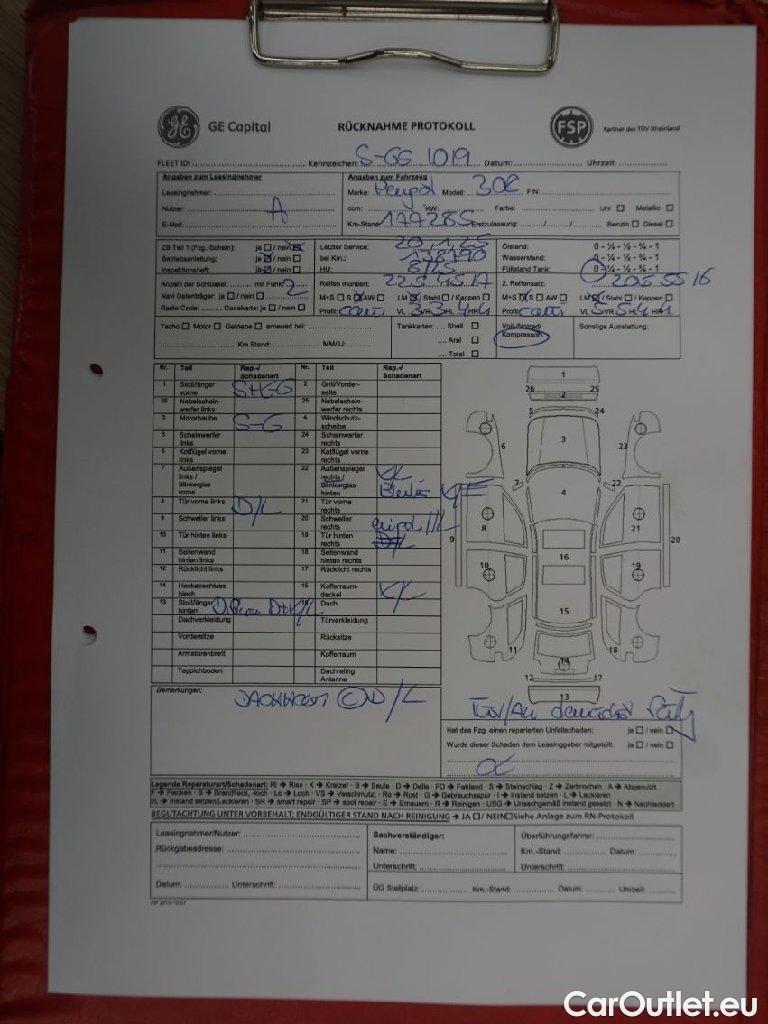 GE Capital RÜCKNAHME PROTOKOLL FSP Partner des TÜV Rheinland
FLEET ID: Kennzeichen: S-GS 1019 Datum: Uhrzeit:
Angaben zum Leasingnehmer Angaben zum Fahrzeug
Leasingnehmer: Marke: Modell: 308 FIN:
Nutzer: A ccm: KW: Farbe: Uni ☐ Metallic ☐
E-Mail: Km-Stand: 177285 Erstzulassung: / / Benzin ☐ Diesel ☐
ZB Teil 1 (Fzg.-Schein): ja ☐ / nein ☒ Letzter Service: Ölstand: 0 - ¼ - ½ - ¾ - 1
Betriebsanleitung: ja ☒ / nein ☐ bei Km.: Wasserstand: 0 - ¼ - ½ - ¾ - 1
Inspektionsheft ja ☒ / nein ☐ HU: 8/25 Füllstand Tank: 0 - ¼ - ½ - ¾ - 1
Anzahl der Schlüssel: mit Funk: 2 Reifen montiert: 225 45 17 Z. Reifensatz: 205 55 16
Navi Datenträger: ja ☐ / nein ☐ M+S ☐ S ☒ AW ☐ LM ☒ / Stahl ☐ / Kappen ☐ M+S ☒ S ☐ AW ☐ LM ☒ / Stahl ☐ / Kappen ☐
Radio Code: Codekarte: ja ☐ / nein ☐ Profil: VL 3 VR 3 HL 4 HR 4 Profil: VL 5 VR 5 HL 4 HR 4
Tacho ☐ Motor ☐ Getriebe ☐ erneuert bei: Tankkarten: Shell ☐ Voll-/Notrad/ Sonstige Ausstattung:
Aral ☐ Kompressor
Km Stand: MM/JJ: Total ☐
Nr. Teil Rep.-/Schadenart Nr. Teil Rep.-/Schadenart
1 Stoßfänger vorne S+G-G 2 Grill/Vorderseite
26 Nebelscheinwerfer links 25 Nebelscheinwerfer rechts
3 Motorhaube S-G 4 Windschutzscheibe
5 Scheinwerfer links 24 Scheinwerfer rechts
6 Kotflügel vorne links 23 Kotflügel vorne rechts
7 Außenspiegel links / Blinkerglas vorne 22 Außenspiegel rechts / Blinkerglas hinten
8 Tür vorne links D/L 21 Tür vorne rechts
9 Schweller links 20 Schweller rechts
10 Tür hinten links 19 Tür hinten rechts D/L
11 Seitenwand hinten links 18 Seitenwand hinten rechts
12 Rücklicht links 17 Rücklicht rechts
14 Heckabschlussblech 15 Kofferraumdeckel K/L
13 Stoßfänger hinten 16 Dach
Dachverkleidung Türverkleidung
Vordersitze Rücksitze
Armaturenbrett Kofferraum
Teppichboden Dachreling Antenne
1
26 25
2
5 24
3
6 23
7 22
4
8 21
9 20
16
10 19
15
11 18
14
12 17
13
Bemerkungen:
Hat das Fzg. einen reparierten Unfallschaden: ja ☐ / nein ☐
Wurde dieser Schaden dem Leasinggeber mitgeteilt: ja ☐ / nein ☐
Legende Reparaturart/Schadenart: RI → Riss · K → Kratzer · B → Beule · D → Delle · FD → Fehlend · S → Steinschlag · Z → Zerbrochen · A → Abgenutzt
F → Flecken · B → Brandfleck, -loch · Lo → Loch · VS → Verschmutz. · Ro → Rost · G → Gebrauchsspur · I → Instand setzen · L → Lackieren
I/L → Instand setzen/Lackieren · SR → smart repair · SP → spot repair · E → Erneuern · R → Reinigen · USG → Unsachgemäß instand gesetzt · N → Nachlackiert
BEGUTACHTUNG UNTER VORBEHALT; ENDGÜLTIGER STAND NACH REINIGUNG → JA ☐ / NEIN ☐ Siehe Anlage zum RN-Protokoll
Leasingnehmer/Nutzer: Sachverständiger: Überführungsfahrer:
Rückgabeadresse: Name: Km.-Stand: Datum:
Unterschrift: Unterschrift:
Datum: Unterschrift: ÜG Stellplatz: Km.-Stand: Datum: Uhrzeit:
CarOutlet.eu